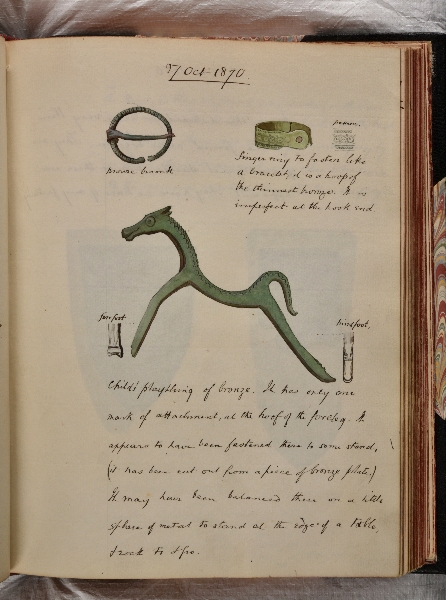 27 Oct 1870.
bronze brooch
pattern.
Finger ring to fasten like
a bracelet, it is a hoop of
the thinnest bronze. It is
imperfect at the hook end
forefoot
hindfoot.
Child's plaything of bronze. It has only one
mark of attachment, at the hoof of the foreleg. It
appears to have been fastened there to some stand,
(it has been cut out from a piece of bronze plate.)
It may have been balanced then on a little
sphere of metal to stand at the edge of a table
&rock to &fro.